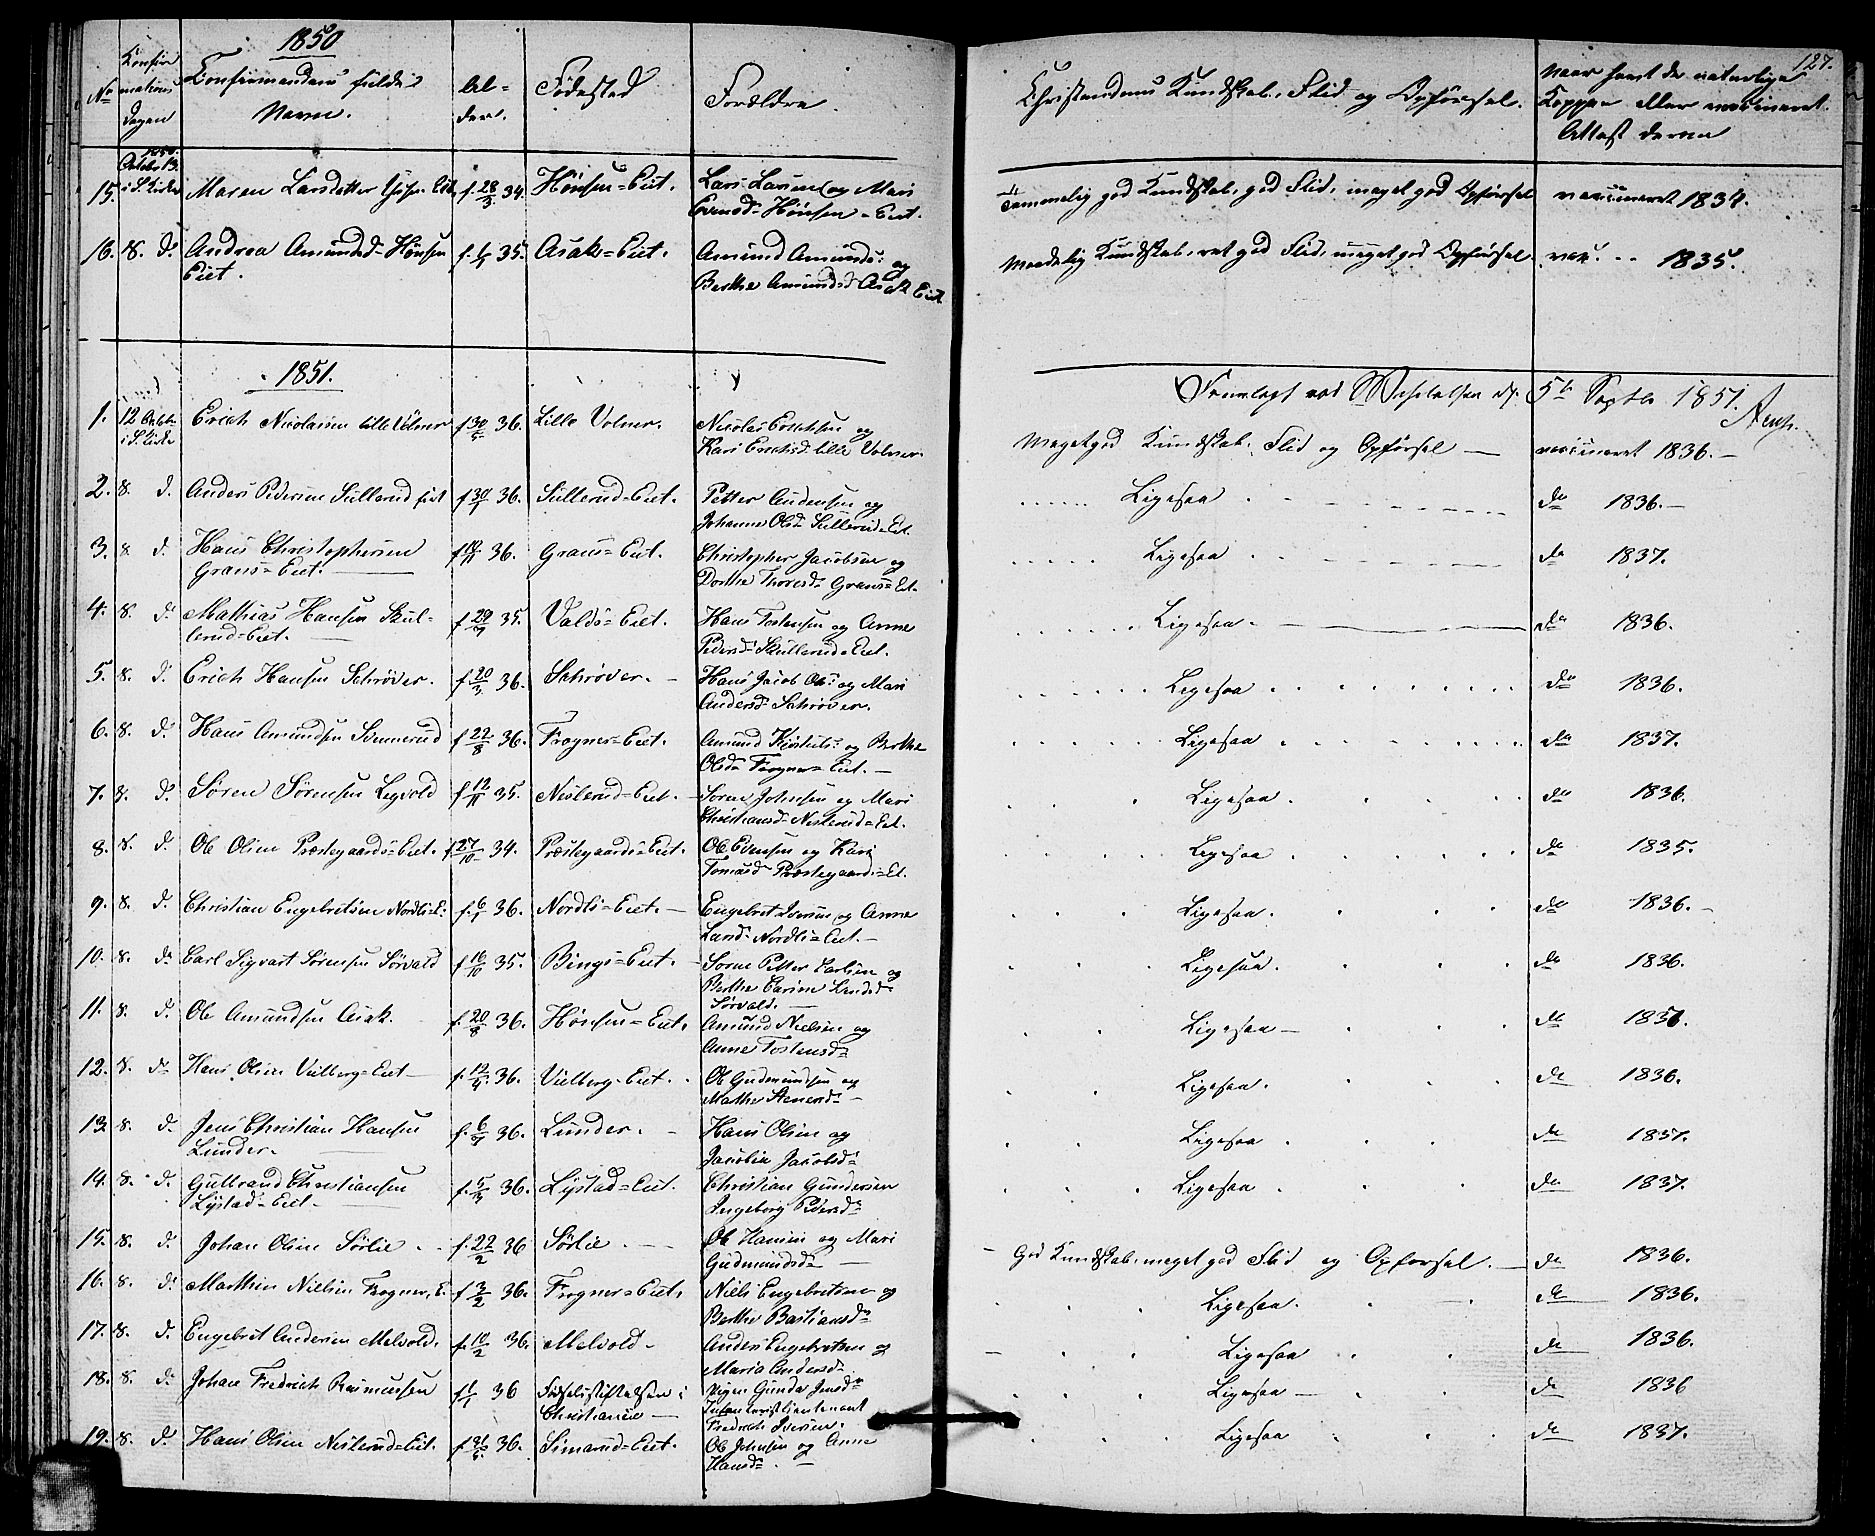 1850
127.
No
Konfir
mations
dagen
Konfirmandens fulde
Navn.
Al-
der.
Fødested
Forældre.
Christendoms Kundskab, Flid og Opførsel.
Naar havt de naturlige
Kopper eller vaccineret.
Attest derom
1850.
October 13.
15. Maren Larsdatter f. 28/3 34. Hønsen=Eiet. Lars Larsen og Mari
Evensd. Hønsen=Eiet.
Temmelig god Kundskab, god Flid, meget god Opførsel vaccineret 1834.
16. 8. d. Andrea Amundsd. Hønsen f. 35. Asak=Eiet. Amund Amunds. og
Eiet. Berthe Amundsd. Asak Eiet
Maadelig Kundskab, ret god Flid, meget god Opførsel vac. 1835.
1851.
Fremlagt ved Visitatsen d. 5t Septb 1851.
1. 12 Octbr Erich Nicolaisen lille Vølner f. 30/5 36. Lille Volner. Nicolai Erichsen og
Kari Erichsd. lille Volner.
Meget god Kundskab, Flid og Opførsel — vaccineret 1836.—
2. 8. d. Anders Pedersen Sullerud Eiet f. 36. Sullerud=Eiet. Petter Andersen og
Johanne Olsd. Sullerud=Eiet.
Ligesaa do 1836.—
3. 8. d. Hans Christophersen f. 36. Graus=Eiet. Christopher Jacobsen og
Graus=Eiet. Dorthe Thoresd. Graus=Et.
Ligesaa do 1837.
4. 8. d. Mathias Hansen Skul- f. 35. Valds=Eiet. Hans Tostensen og Anne
lerud=Eiet. Pedersd. Skullerud=Eiet.
Ligesaa. do 1836.
5. 8. d. Erich Hansen Schrøver. f. 20/3 36. Schrøver. Hans Jacob Ols. og Mari
Andersd. Schrøver.
Ligesaa do 1836.
6. 8. d. Hans Amundsen Svennerud f. 22/8 36. Frogner=Eiet. Amund og Berthe
Olsd. Frogner=Eiet.—
Ligesaa do 1837.
7. 8. d. Søren Sørensen Legvold f. 12/11 35. Neslerud=Eiet. Søren Johnsen og Mari
Christiansd. Neslerud=Et.
Ligesaa. do 1836.
8. 8. d. Ole Olsen Præstegaards=Eiet. f. 27/10 34. Præstegaards=Eiet. Ole Evensen og Kari
Tomasd. Præstegaards=Et.
Ligesaa do 1835.
9. 8. d. Christian Engebretsen Nordli=E. f. 36. Nordli=Eiet.— Engebret Iversen og Anne
Larsd. Nordli=Eiet.—
Ligesaa. do 1836.—
10. 8. do Carl Sigvart Sørensen Sørvald f. 16/10 35. Bings=Eiet. Søren Petter Carlsen og
Berthe Carine
Sørvald.
Ligesaa. do 1836.
11. 8. d. Ole Amundsen Asak. f. 20/8 36. Hønsen=Eiet. Amund Nielsen og
Anne Tostensd.
Ligesaa — do 1851.
12. 8. do Hans Olsen Vulberg=Eiet f. 36. Vulberg=Eiet. Ole Gudmundsen og
Mathe
Ligesaa. do 1836.
13. 8. d. Jens Christian Hansen f. 36. Lunder. Hans Olsen og
Lunder. Jacobine Jacobsd.
Ligesaa do 1837.
14. 8. d. Guttrand Christiansen f. 36. Lystad=Eiet. Christian Gundersen
Lystad=Eiet. Ingeborg Pedersd.
Ligesaa do 1837.
15. 8. d. Johan Olsen Sørlie f. 22/2 36 Sørlie. Ole Hansen og Mari
Gudmundsd.
God Kundskab, meget god Flid og Opførsel. do 1836.
16. 8. d. Mathias Nielsen Frogner, E. f. 3/2 36. Frogner=Eiet. Niels Engebretsen og
Berthe Bastiansd.
Ligesaa. do 1836.
17. 8. d. Engebret Andersen Melvold. f. 10/2 36. Melvold. Anders Engebretsen og
Maria Andersd.
Ligesaa do 1836.
18. 8. d. Johan Fredrich Rasmussen f. 36 Fødselsstiftelsen i Pigen Gunda Jensd.
Christiania Lieutenant
Fredrich Iversen.
Ligesaa do 1836
19. 8. d. Hans Olsen Neslerud=Eiet. f. 36. Simarud=Eiet. Ole Johnsen og Anne
Hansd.
Ligesaa do 1837.